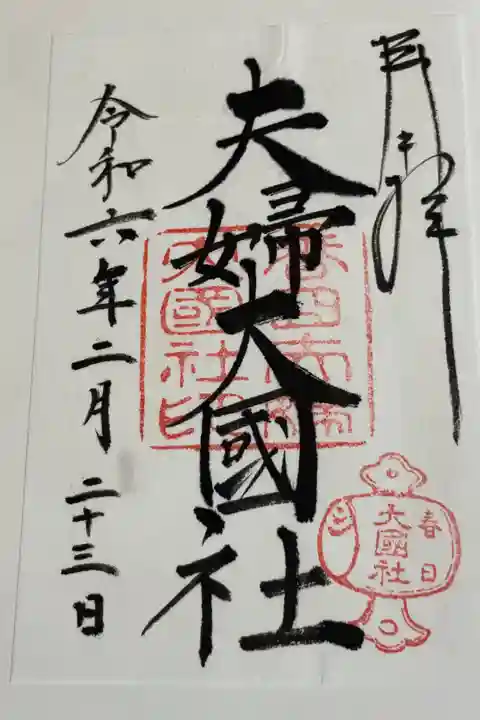 拝
夫婦大國社
令和六年二月二十三日
春日
大國社